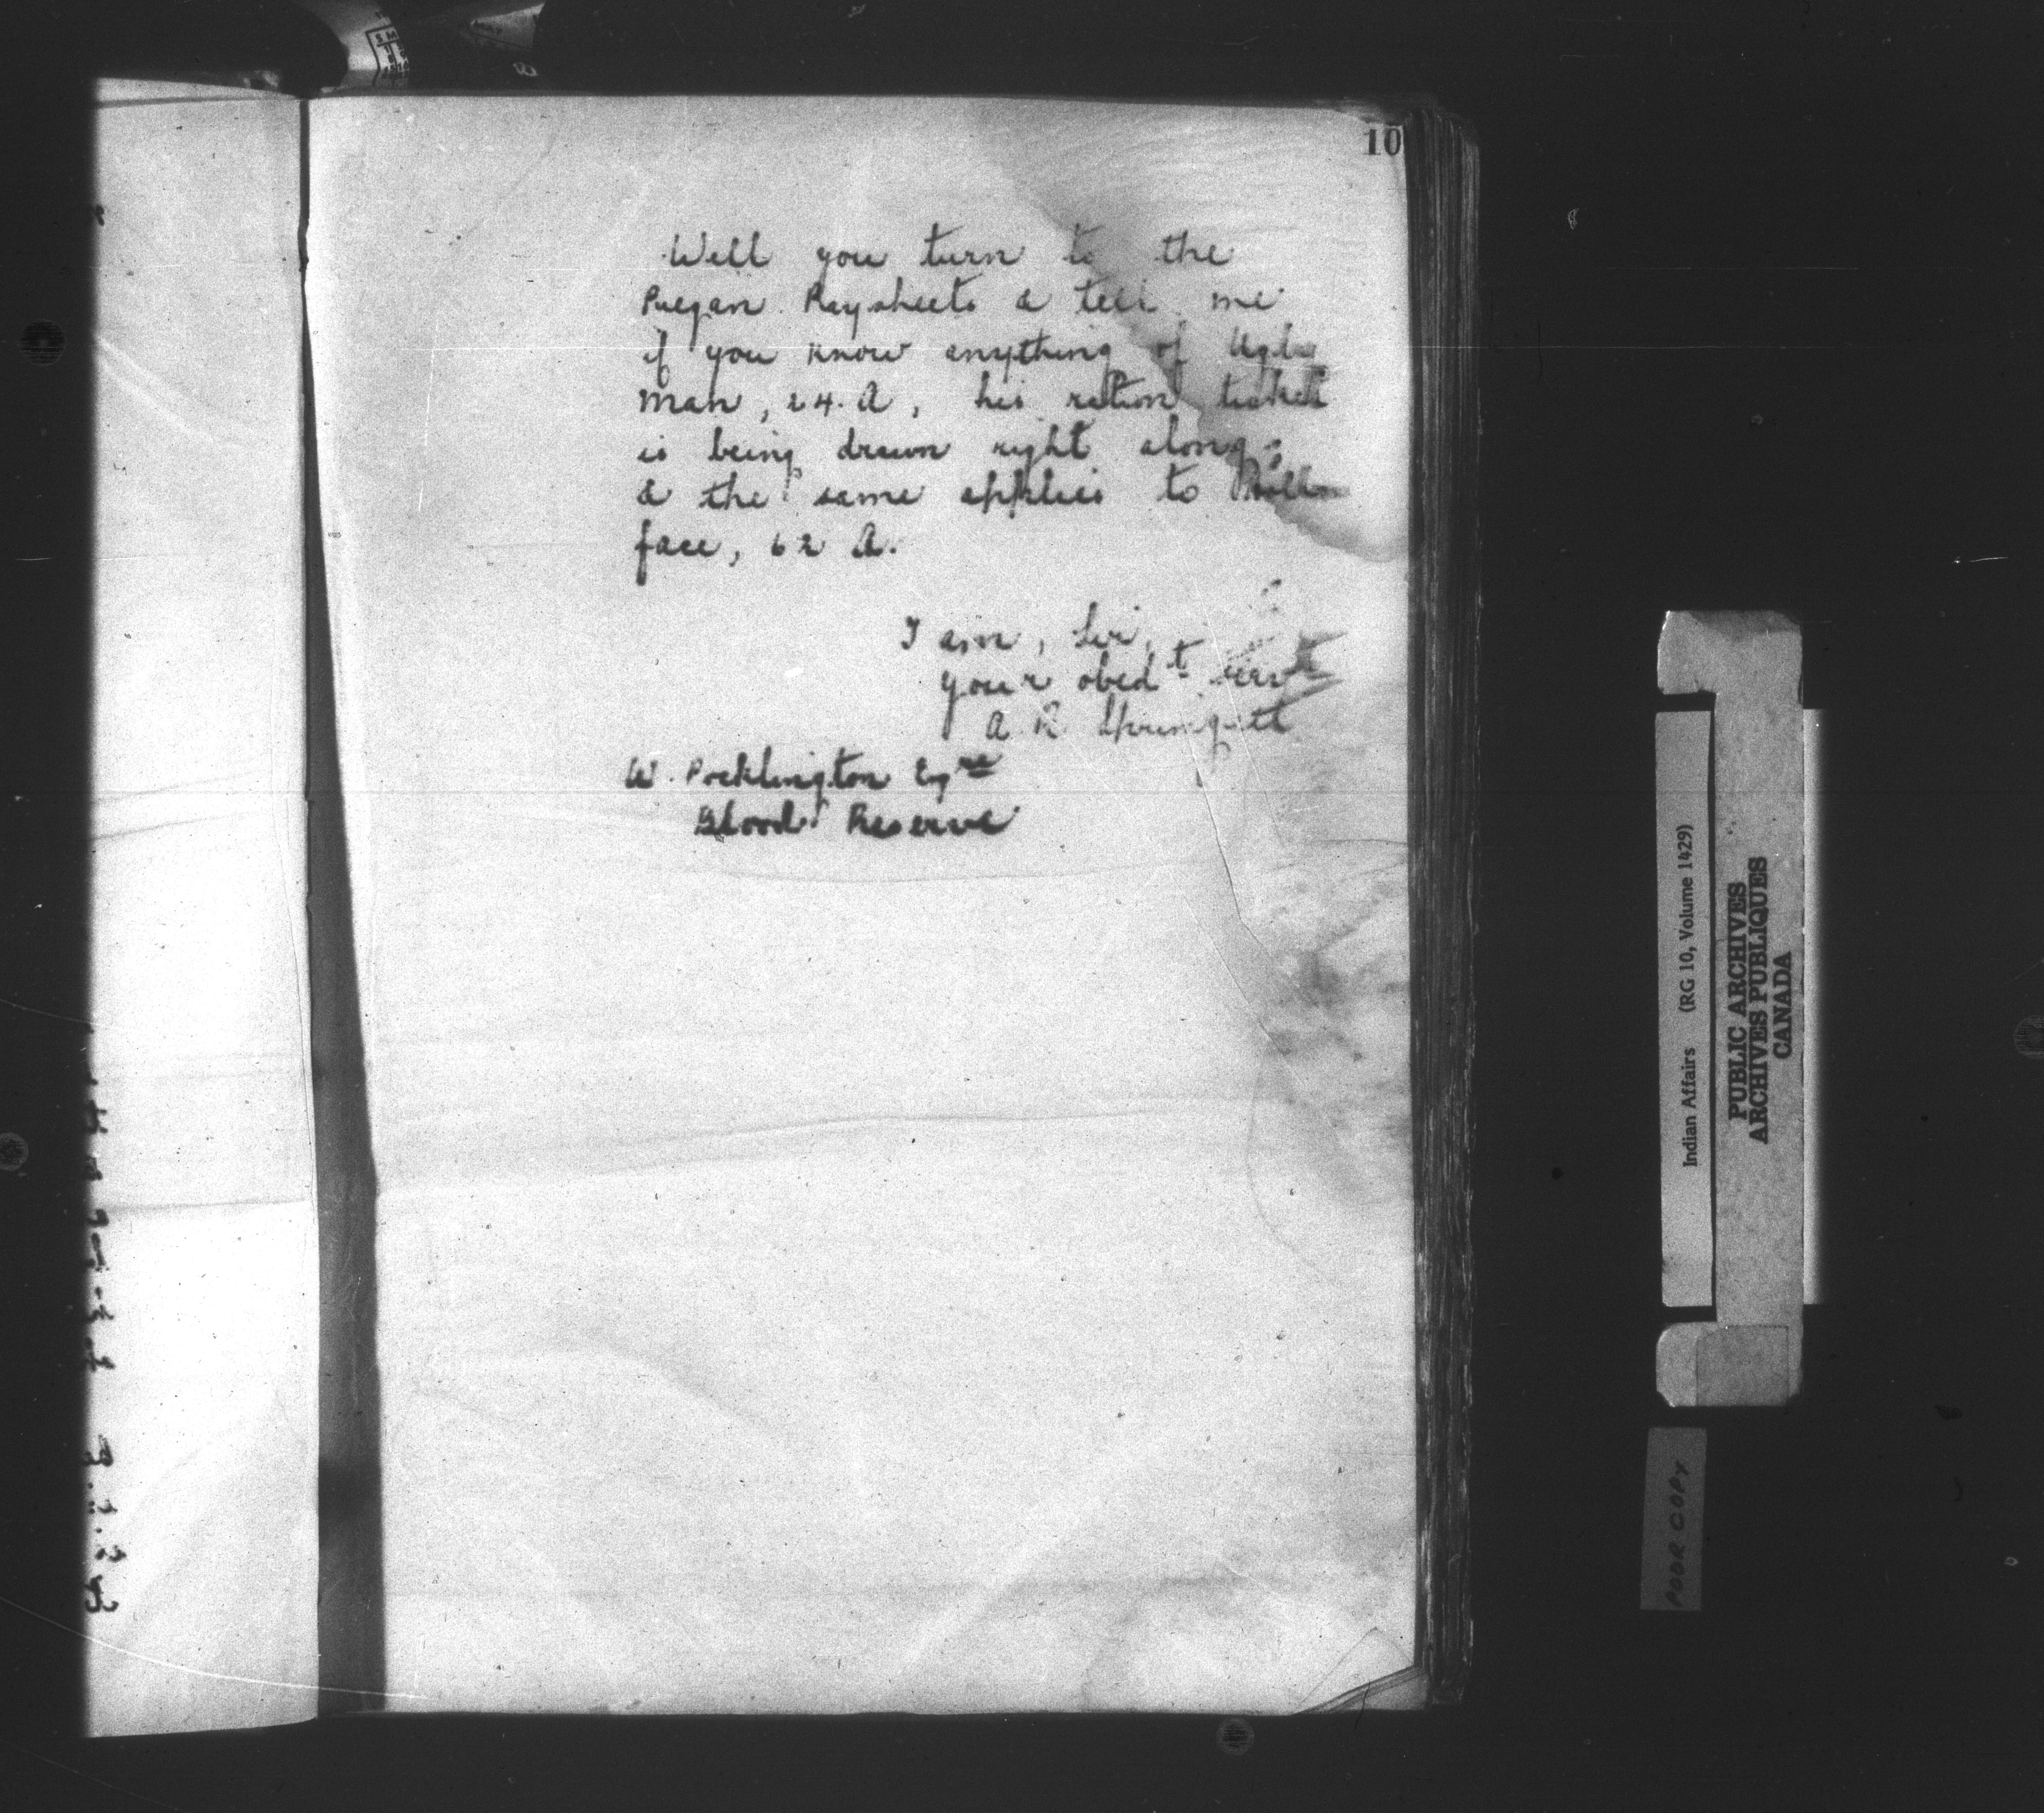 10
Will you turn to the
Piegan Paysheets & tell me
if you know anything of Ugly
man, 24. A, his ration ticket
is being drawn right along,
& the same applies to
face, 62 A.
I am, Sir,
your obedt servt
A R Springett
W. Pocklington Esqre
Blood Reserve
Indian Affairs (RG 10, Volume 1429)
PUBLIC ARCHIVES
ARCHIVES PUBLIQUES
CANADA
POOR COPY